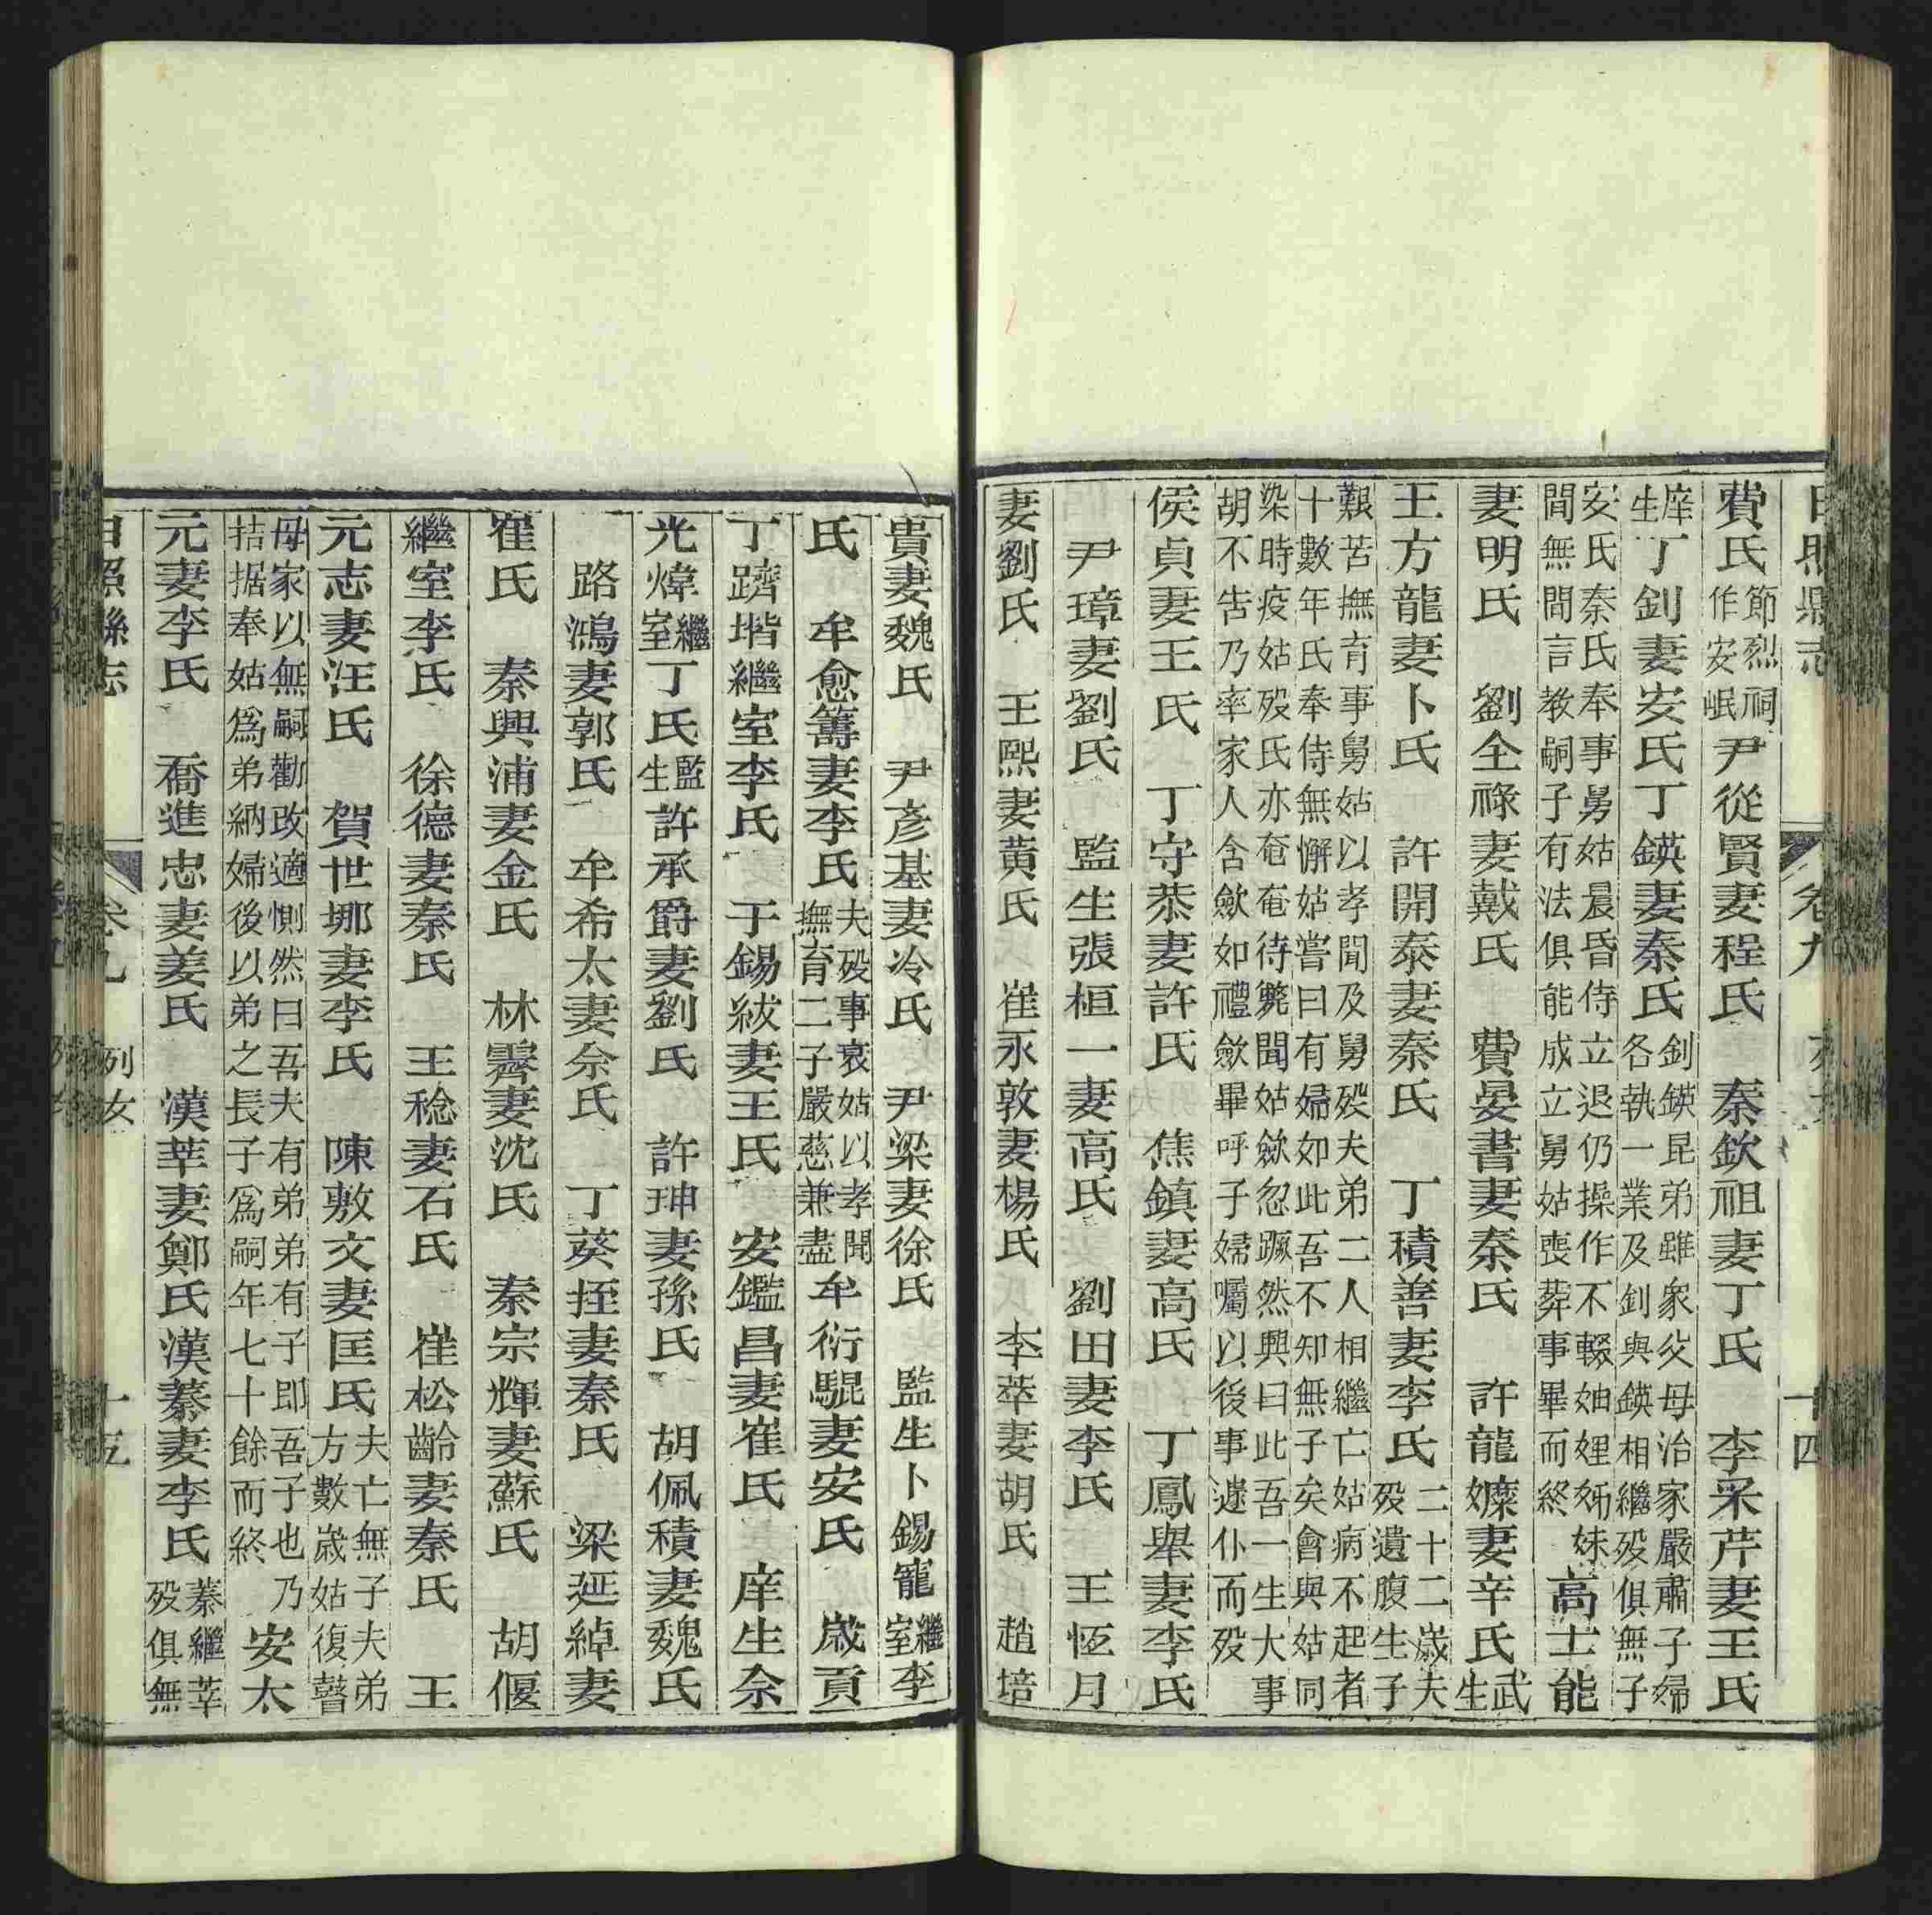 日照縣志 卷九 列女 十四
費氏 節烈祠作安岷 尹從賢妻程氏 秦欽祖妻丁氏 李采芹妻王氏
庠生丁釗妻安氏丁鍈妻秦氏 釗鍈昆弟雖衆父母治家嚴肅子婦
各執一業及釗與鍈相繼歿俱無子
安氏秦氏奉事舅姑晨昏侍立退仍操作不輟妯娌姊妹
間無間言教嗣子有法俱能成立舅姑喪葬事畢而終 高士能
妻明氏 劉全祿妻戴氏 費晏書妻秦氏 許龍嬤妻辛氏 武生
王方龍妻卜氏 許開泰妻秦氏 丁積善妻李氏 二十二歲夫
歿遺腹生子
艱苦撫育事舅姑以孝聞及舅歿夫弟二人相繼亡姑病不起者
十數年氏奉侍無懈姑嘗曰有婦如此吾不知無子矣會與姑同
染時疫姑歿氏亦奄奄待斃聞姑歛忽蹶然興曰此吾一生大事
胡不告乃率家人含歛如禮歛畢呼子婦囑以後事遽仆而歿
侯貞妻王氏 丁守恭妻許氏 焦鎮妻高氏 丁鳳舉妻李氏
尹璋妻劉氏 監生張桓一妻高氏 劉田妻李氏 王恆月
妻劉氏 王熙妻黄氏 崔永敦妻楊氏 李萃妻胡氏 趙培
貴妻魏氏 尹彥基妻冷氏 尹梁妻徐氏 監生卜錫寵繼室李
氏 牟愈籌妻李氏 夫歿事衰姑以孝聞
撫育二子嚴慈兼盡 牟衍騉妻安氏 歲貢
丁躋堦繼室李氏 于錫紱妻王氏 安鑑昌妻崔氏 庠生佘
光煒繼室丁氏 監生許承爵妻劉氏 許珅妻孫氏 胡佩積妻魏氏
路鴻妻郭氏 牟希太妻佘氏 丁葵挃妻秦氏 梁延綽妻
崔氏 秦興浦妻金氏 林霽妻沈氏 秦宗輝妻蘇氏 胡偃
繼室李氏 徐德妻秦氏 王稔妻石氏 崔松齡妻秦氏 王
元志妻汪氏 賀世挪妻李氏 陳敷文妻匡氏 夫亡無子夫弟
方數歲姑復瞽
母家以無嗣勸改適惻然曰吾夫有弟弟有子即吾子也乃
拮据奉姑爲弟納婦後以弟之長子爲嗣年七十餘而終 安太
元妻李氏 喬進忠妻姜氏 漢莘妻鄭氏漢蓁妻李氏 蓁繼莘
歿俱無
日照縣志 卷九 列女 十五